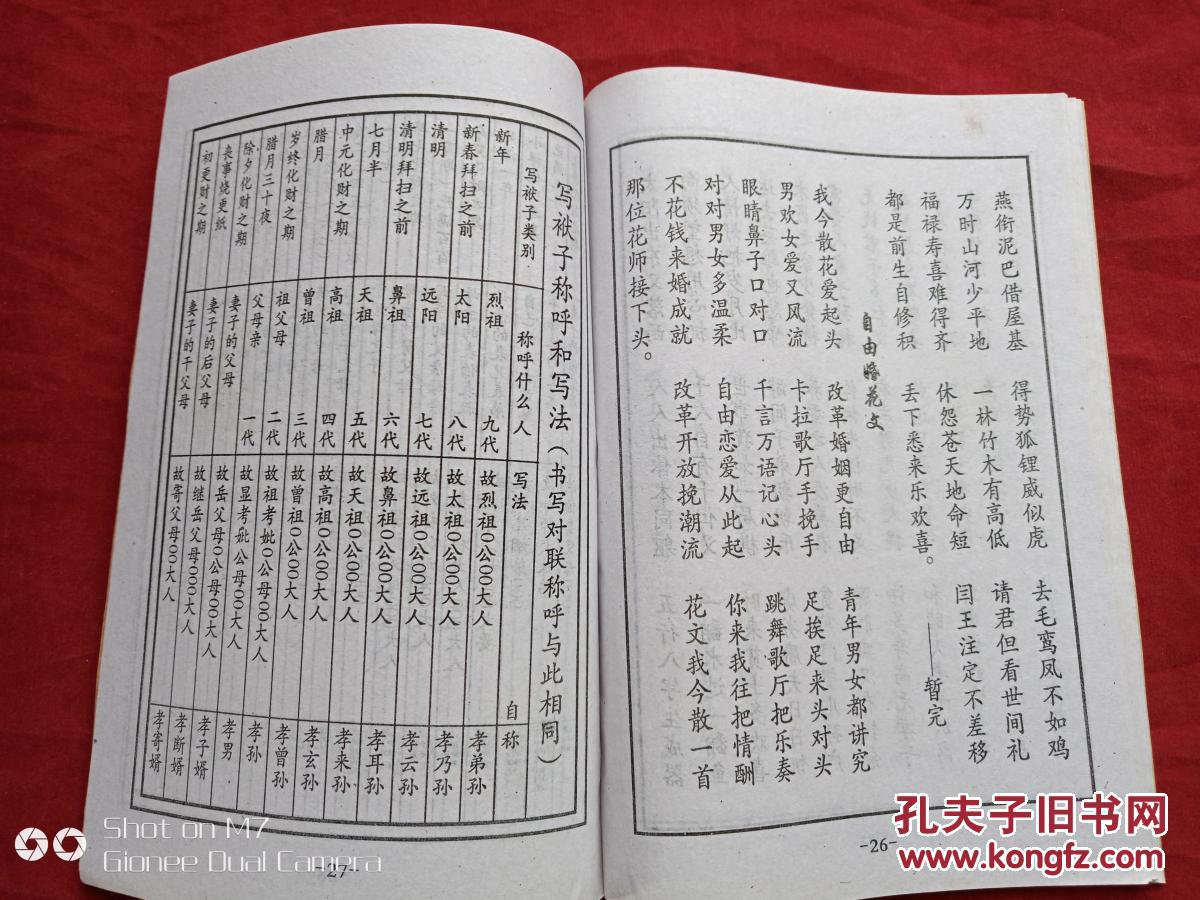 燕衔泥巴借屋基 得势狐锂威似虎 去毛鸾凤不如鸡
万时山河少平地 一林竹木有高低 请君但看世间礼
福禄寿喜难得齐 休怨苍天地命短 闫王注定不差移
都是前生自修积 丢下悉来乐欢喜。 ——暂完
自由婚花文
我今散花爱起头 改革婚姻更自由 青年男女都讲究
男欢女爱又风流 卡拉歌厅手挽手 足挨足来头对头
眼睛鼻子口对口 千言万语记心头 跳舞歌厅把乐奏
对对男女多温柔 自由恋爱从此起 你来我往把情酬
不花钱来婚成就 改革开放挽潮流 花文我今散一首
那位花师接下头。
-26-
写袱子称呼和写法（书写对联称呼与此相同）
写袱子类别 称呼什么人 写法 自称
新年 烈祖 九代 故烈祖0公00大人 孝弟孙
新春拜扫之前 太阳 八代 故太祖0公00大人 孝乃孙
清明 远阳 七代 故远祖0公00大人 孝云孙
清明拜扫之前 鼻祖 六代 故鼻祖0公00大人 孝耳孙
七月半 天祖 五代 故天祖0公00大人 孝来孙
中元化财之期 高祖 四代 故高祖0公00大人 孝玄孙
腊月 曾祖 三代 故曾祖0公00大人 孝曾孙
岁终化财之期 祖父母 二代 故祖考妣0公母00大人 孝孙
腊月三十夜 父母亲 一代 故显考妣公母00大人 孝男
除夕化财之期 妻子的父母 故岳父母0公母00大人 孝子婿
丧事烧更纸 妻子的后父母 故继岳父母000大人 孝断婿
初更财之期 妻子的干父母 故寄父母00大人 孝寄婿
-27-
Shot on M7
Gionee Dual Camera
孔夫子旧书网
www.kongfz.com